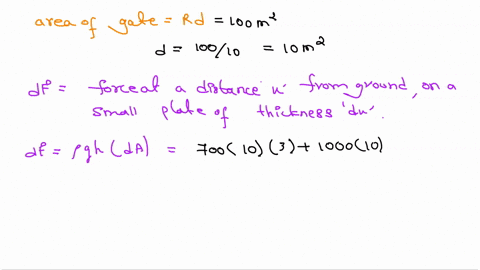 area of gate = Rd = 100 m²
d = 100/10 = 10 m²
dF = force at a distance 'x' from ground, on a
small plate of thickness 'dx'.
dF = ρgh (dA) = 700(10)(3) + 1000(10)